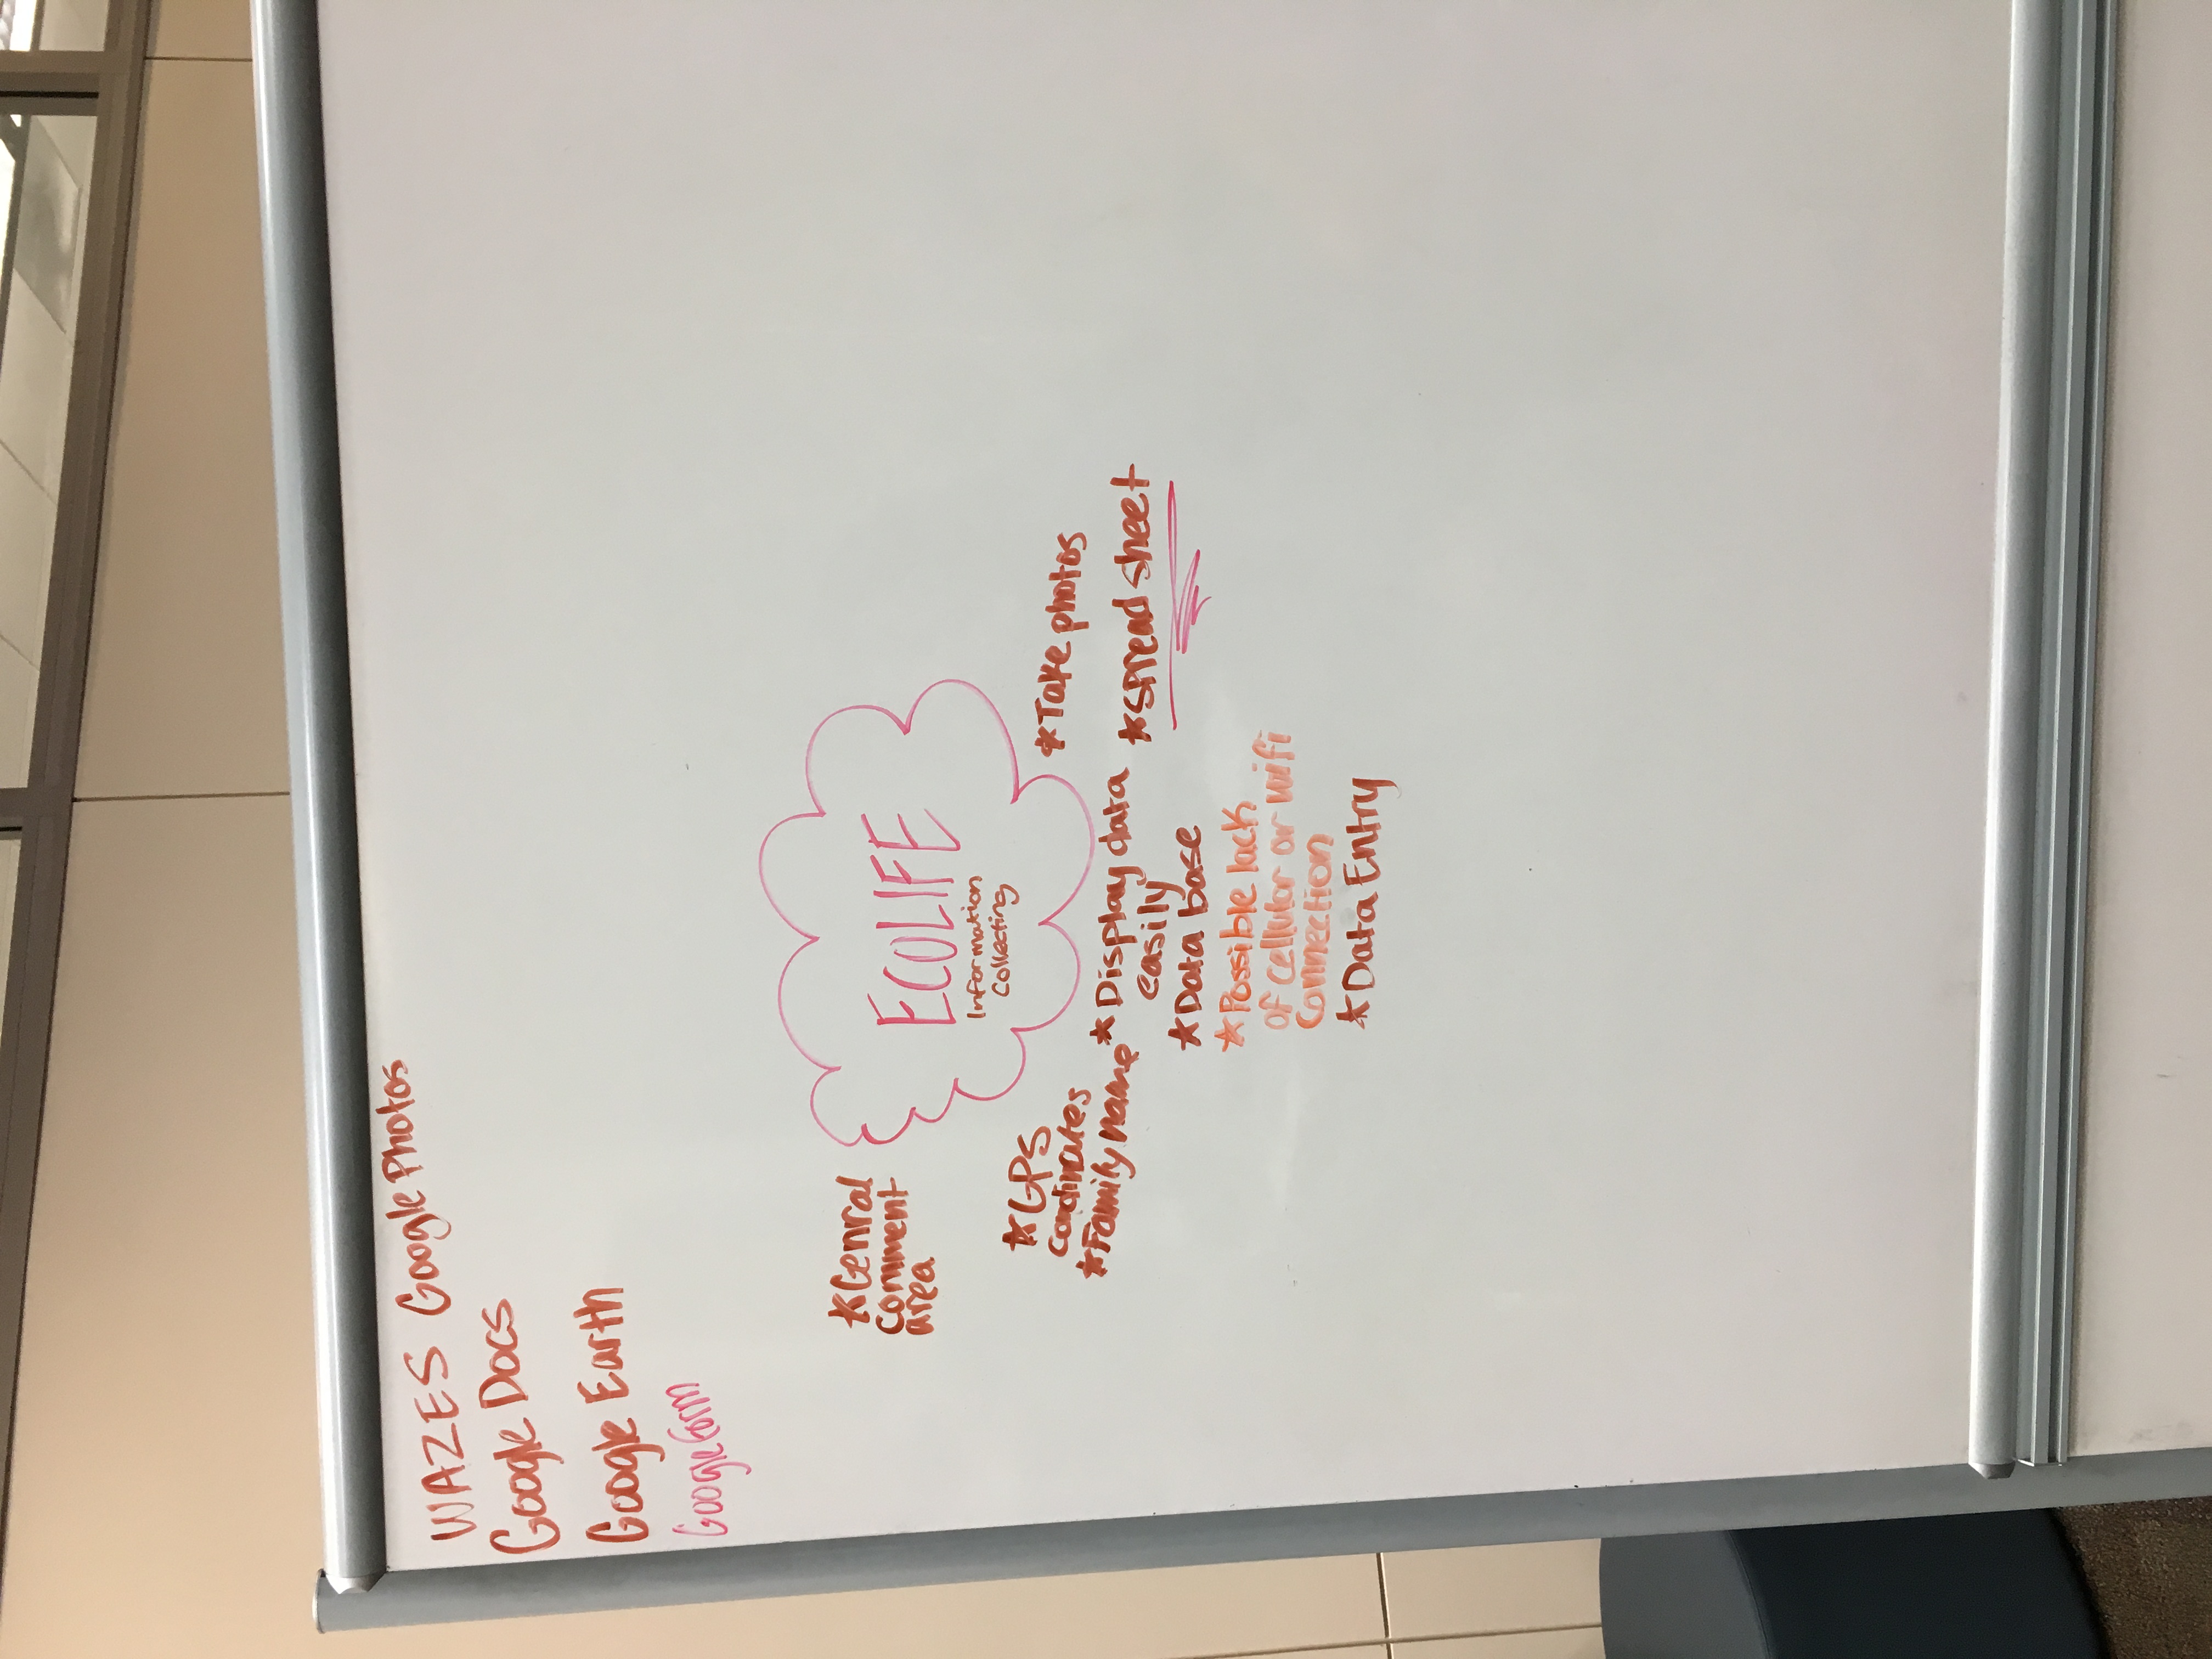 WAZES Google Photos
Google Docs
Google Earth
Google form
ECOLIFE
Information
Collecting
*Genral
Comment
area
*GPS
Cordinates
*Family name
*Display data
easily
*Data base
*Possible lack
of cellular or wifi
Connection
*Data Entry
*Take photos
*Spread sheet